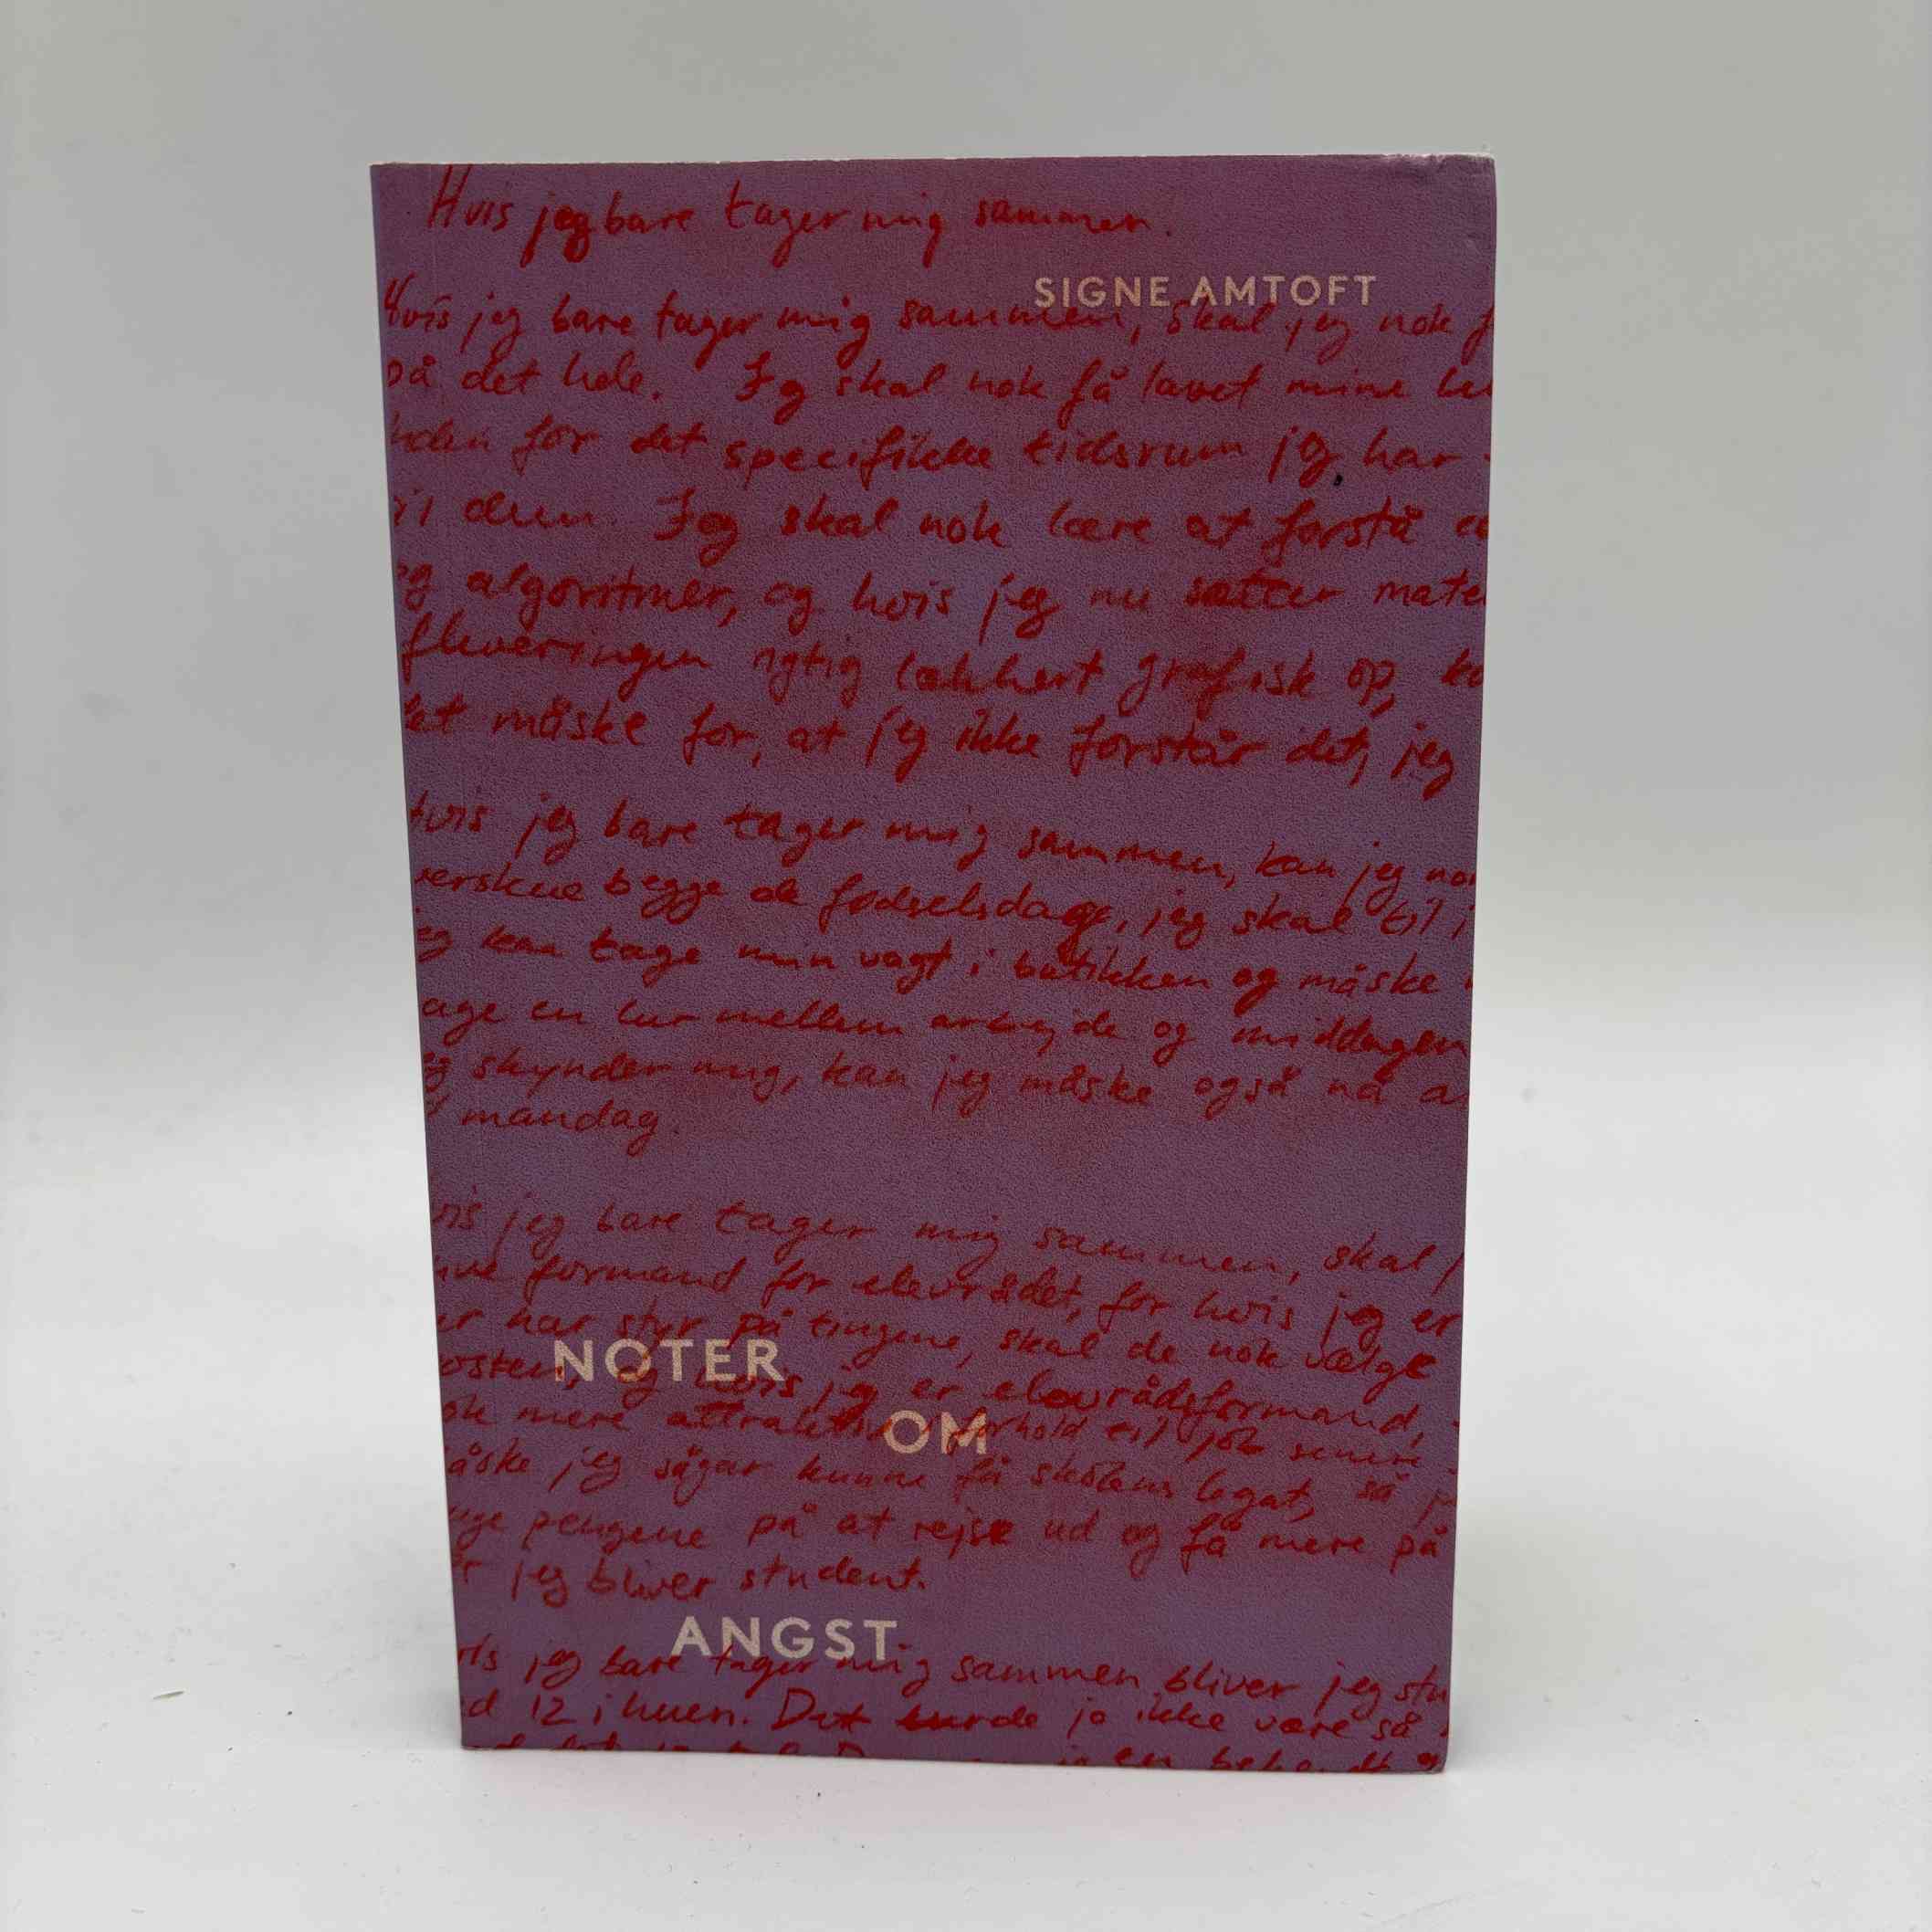 Hvis jeg bare tager mig sammen.
SIGNE AMTOFT
Hvis jeg bare tager mig sammen, skal jeg nok f
på det hele. Jeg skal nok få lavet mine le
nden for det specifikke tidsrum jeg har
til dem. Jeg skal nok lære at forstå
og algoritmer, og hvis jeg nu sætter mate
fleveringen rigtig lækkert grafisk op, ka
det måske for, at jeg ikke forstår det, jeg
Hvis jeg bare tager mig sammen, kan jeg no
verskue begge de fødselsdage, jeg skal til i
eg kan tage min vagt i butikken og måske
age en lur mellem arbejde og middagen
eg skynder mig, kan jeg måske også nå a
mandag.
vis jeg bare tager mig sammen, skal j
live formand for elevrådet, for hvis jeg er
er har styr på tingene, skal de nok vælge
NOTER
osten, og hvis jeg er elevrådsformand,
OM
ok mere attraktiv i forhold til job senere
åske jeg sågar kunne få skolens legat, så j
uge pengene på at rejse ud og få mere på
r jeg bliver student.
ANGST
vis jeg bare tager mig sammen bliver jeg stu
ed 12 i huen. Det burde jo ikke være så